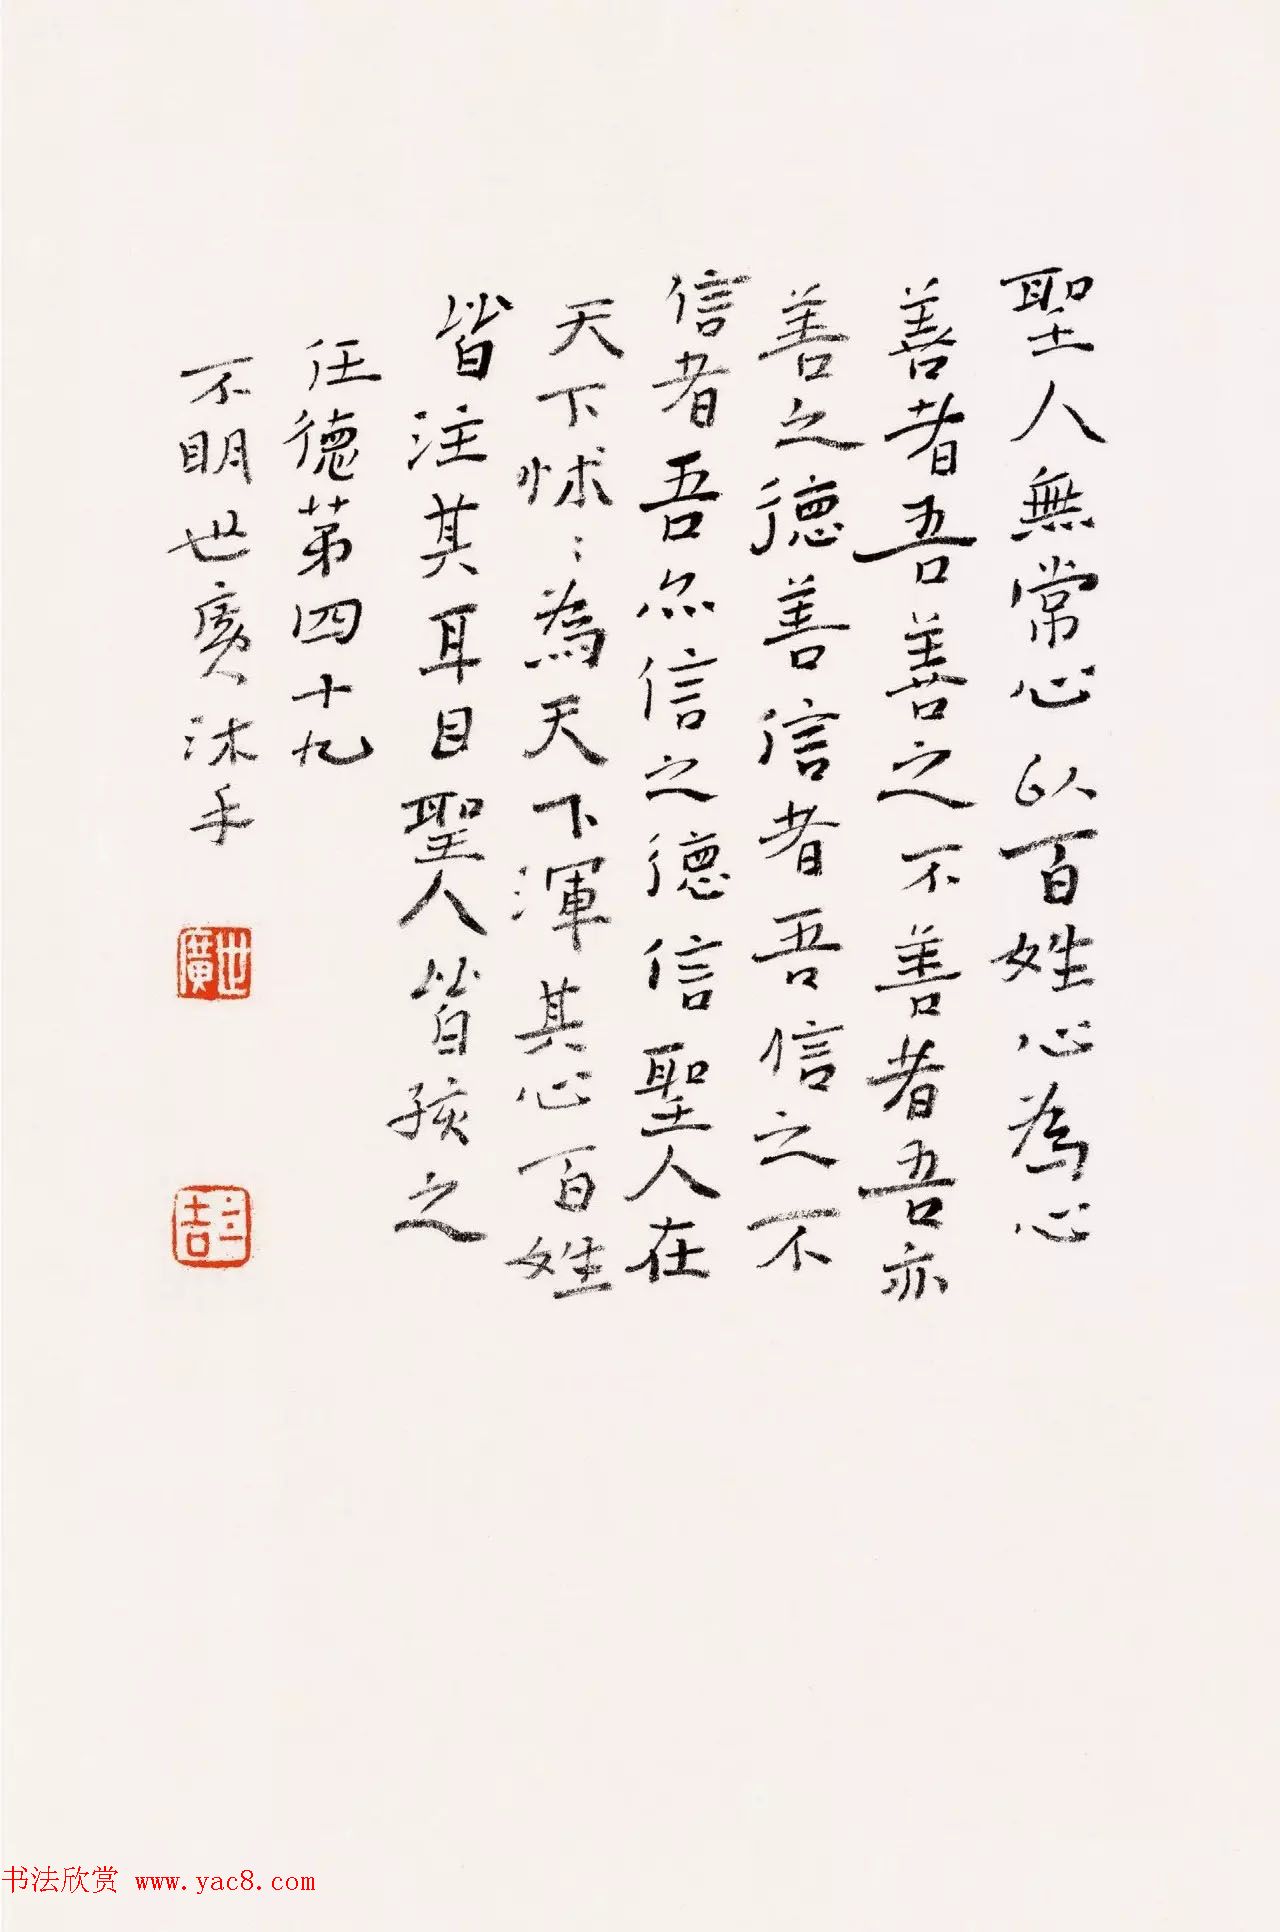 聖人無常心以百姓心為心
善者吾善之不善者吾亦
善之德善信者吾信之不
信者吾亦信之德信聖人在
天下怵〻為天下渾其心百姓
皆注其耳目聖人皆孩之
任德第四十九
不明世廣沐手
世廣
书法欣赏 www.yac8.com